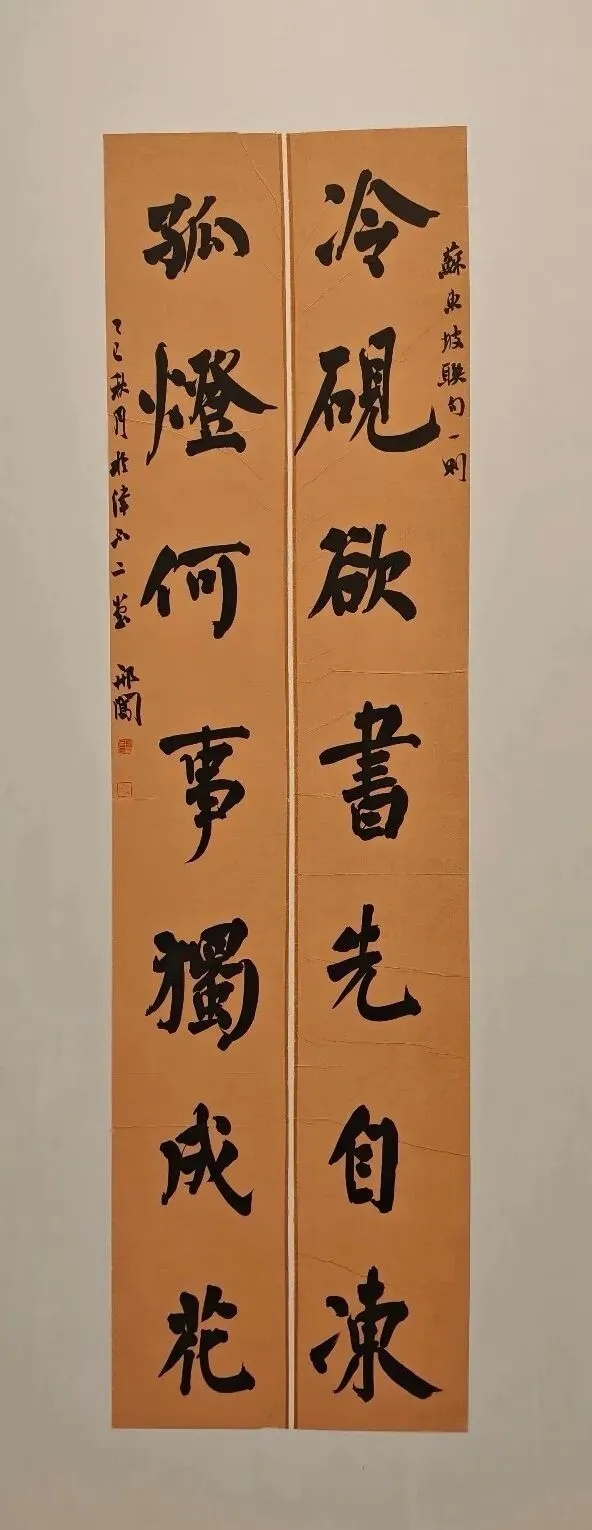 蘇東坡聯句一則
冷硯欲書先自凍
孤燈何事獨成花
乙巳秋月於不二
邢